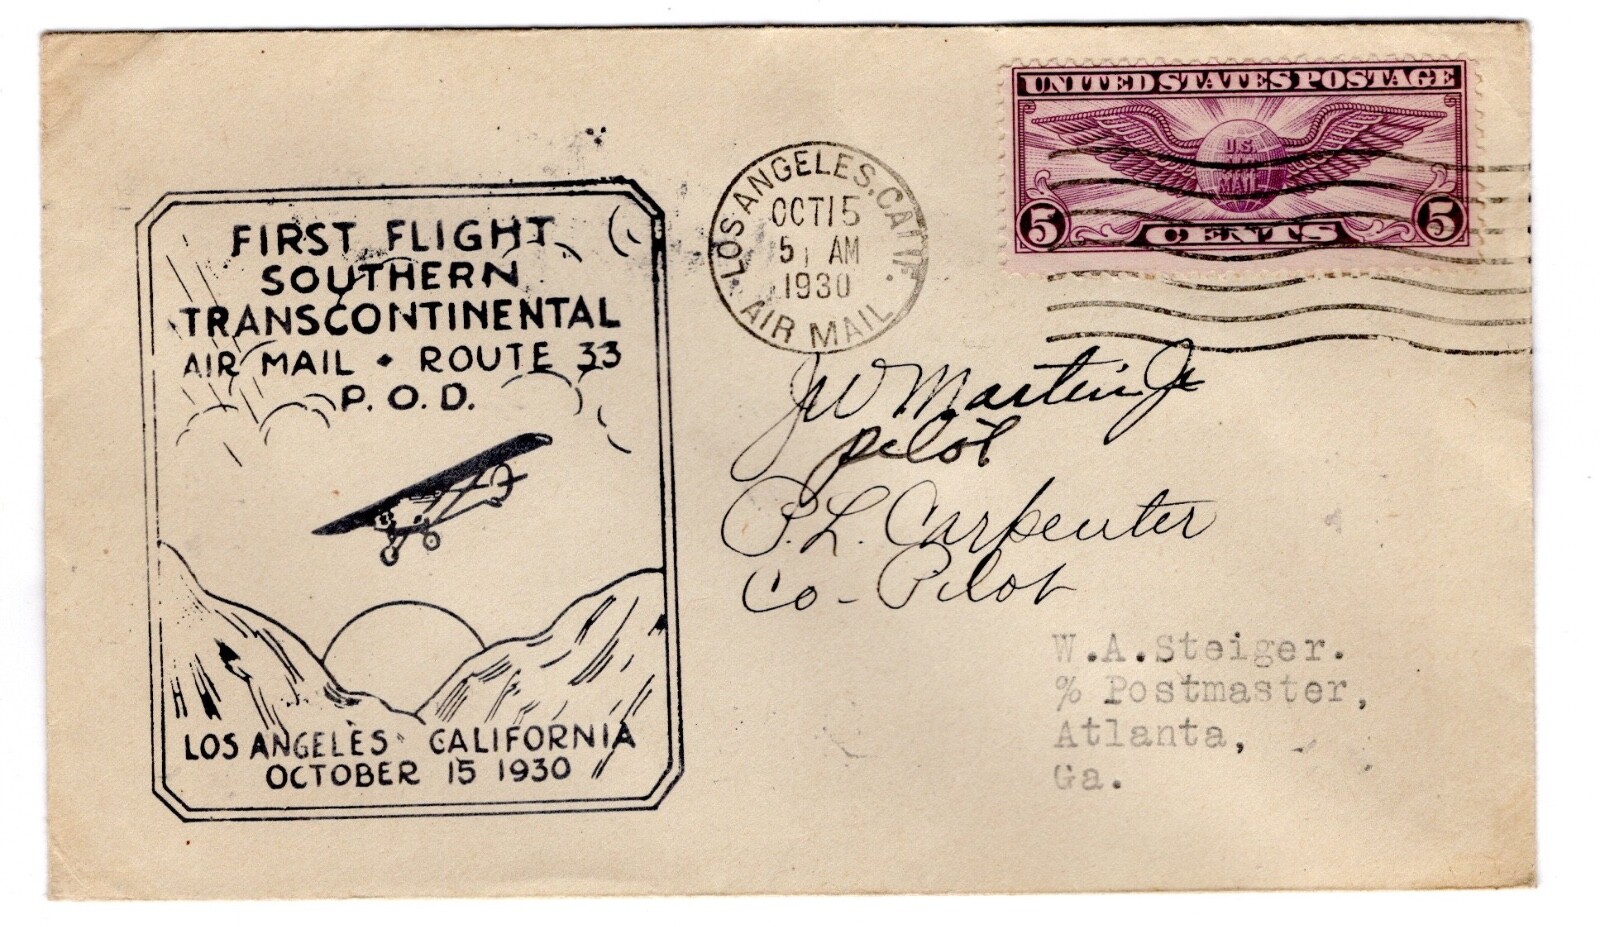 UNITED STATES POSTAGE
U.S.
AIR
MAIL
5 CENTS 5
LOS ANGELES, CALIF.
OCT 15
5 AM
1930
AIR MAIL
FIRST FLIGHT
SOUTHERN
TRANSCONTINENTAL
AIR MAIL • ROUTE 33
P.O.D.
LOS ANGELES CALIFORNIA
OCTOBER 15 1930
JW Martin Jr
Pilot
P.L. Carpenter
Co-Pilot
W.A.Steiger.
% Postmaster,
Atlanta,
Ga.